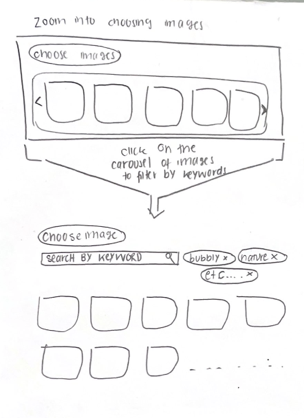 Zoom into choosing images
choose images
< >
click on the
carousel of images
to filter by keywords
Choose image
SEARCH BY KEYWORD
bubbly x
nature x
etc.... x